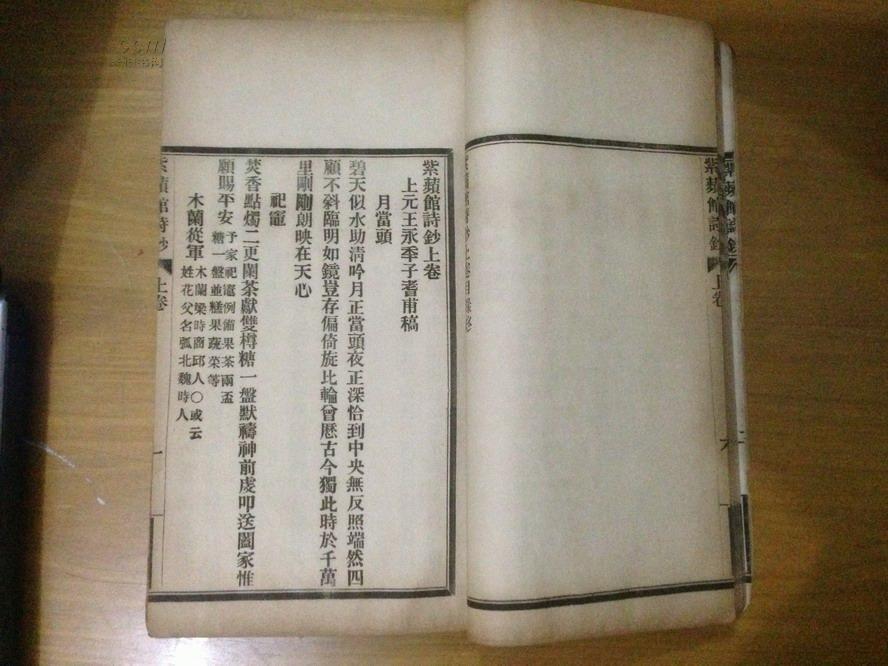 紫蘋館詩鈔
上卷
紫蘋館詩鈔
上卷
紫蘋館詩鈔上卷
上元王永季子耆甫稿
月當頭
碧天似水助清吟月正當頭夜正深恰到中央無反照端然四
顧不斜臨明如鏡豈存偏倚旋比輪曾歷古今獨此時於千萬
里剛剛朗映在天心
祀竈
焚香點燭二更闌茶獻雙樽糖一盤默禱神前虔叩送闔家惟
願賜平安
予家祀竈例備果茶兩盃
糖一盤並糕果蔬菜等
木蘭從軍
木蘭梁時商邱人○或云
姓花父名弧北魏時人
紫蘋館詩鈔
上卷
一